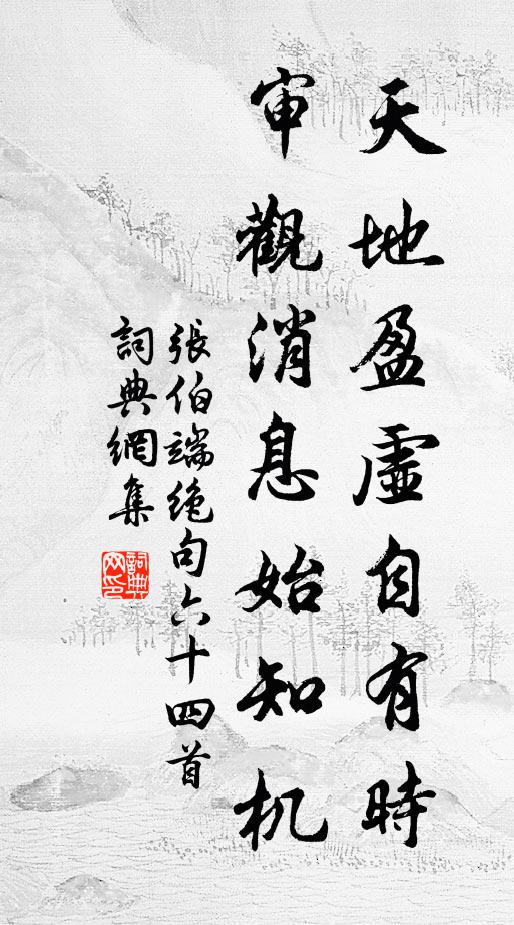 天地盈虛自有時
审觀消息始知机
張伯端絶句六十四首
詞典網集
詞典网印